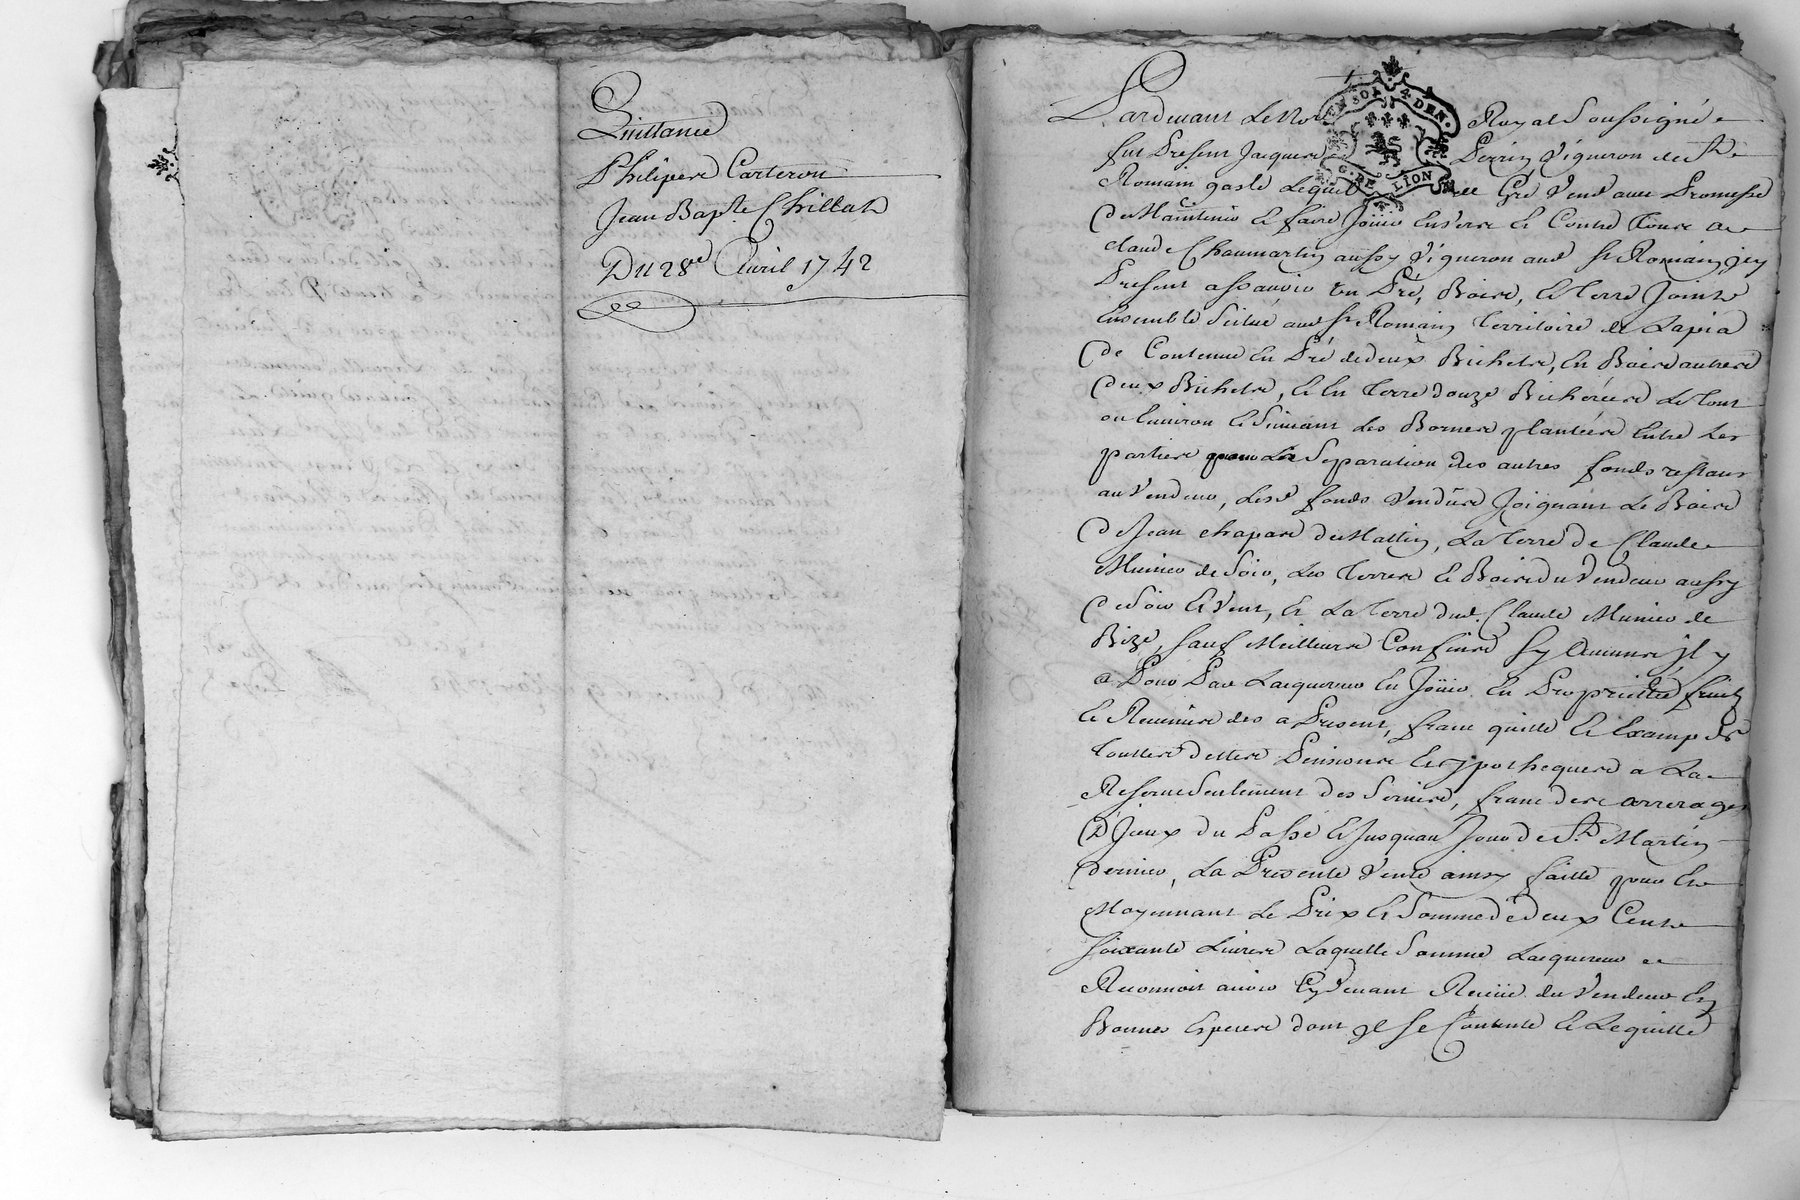 Quittance
Philipere Carteron
Jean Bapte Chillat
Du 28e Avril 1742
EN SOL 4 DEN.
G. DE LION
Pardevant Le No Royal Soussigné
fut Present Jacques Perrin Vigneron de St
Romain gasté Lequel Gré Vend avec Promesse
De Maintenir Et faire Jouir Envers Et Contre Tous a
claude Chaumartin aussy Vigneron aud St Romain jcy
Present assavoir un Pré, Bois, Et Terre Joints
Ensemble Scitué aud St Romain Territoire de Lapia
De Contenue En Pré de deux Bichets, En Bois autres
Deux Bichets, Et En Terre douze Bicherées Le tout
ou Environ Et Suivant Les Bornes plantées Entre Les
parties pour La Separation des autres fonds restans
au Vendeur, Lesd fonds Vendus Joignant Le Bois
De Jean chapard de Matin, La Terre de Claude
Munier de Soir, Les Terres Et Bois du Vendeur aussy
De Soir Et Vent, Et La Terre dud. Claude Munier de
Bize, Sauf Meilleurs Confins Sy Aucuns jl y
a Pour Par Lacquereur En Joüir En Proprieté fruits
Et Revenus des a Present, franc quitte Et Exampt de
Touttes dettes Pensions Et ypotheques a La
Reserve Seulement des Servis, francs des arrerages
D'Jceux du Passé Et Jusquau Jour de St Martin
Dernier, La Presente Vente ainsy faitte pour Et
Moyennant Le Prix Et Somme de deux Cents
Soixante Livres Laquelle Somme Lacquereur
Reconnoit avoir Cy Devant Reçüe du Vendeur En
Bonnes Especes dont jl Se Contente Et Lequitte